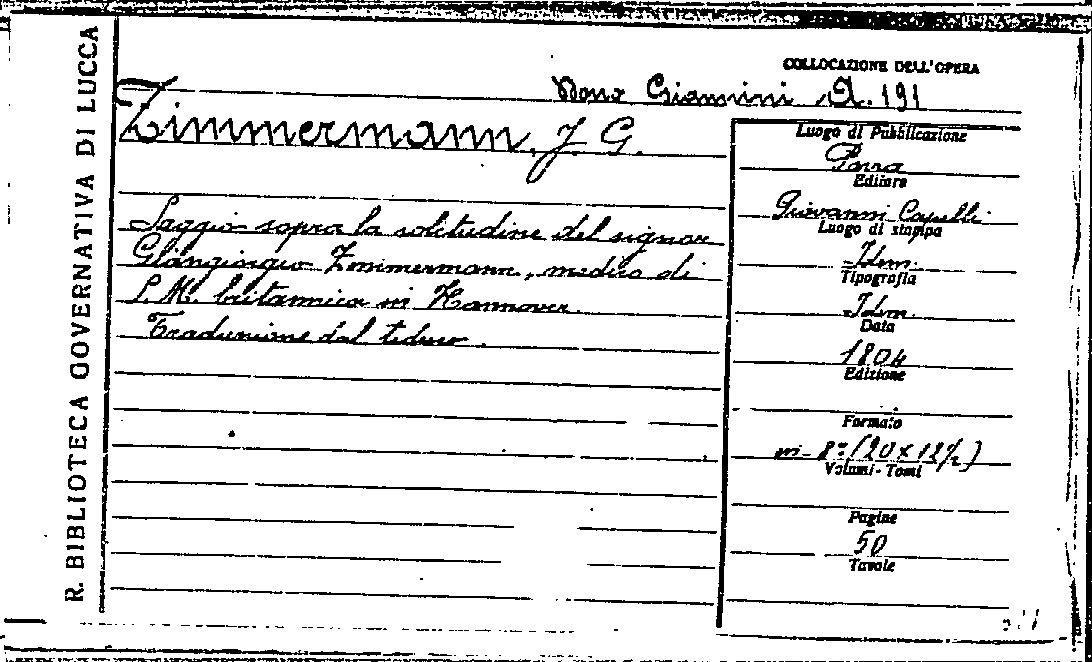 R. BIBLIOTECA GOVERNATIVA DI LUCCA
COLLOCAZIONE DELL'OPERA
Dono Giannini A. 191
Zimmermann, J. G.
Saggio sopra la solitudine del signor
Giangiorgio Zimmermann, medico di
S. M. britannica in Hannover.
Traduzione dal tedesco.
Luogo di Pubblicazione
Editore
Giovanni Capelli
Luogo di stampa
Idem.
Tipografia
Idem.
Data
1804
Edizione
Formato
in-8º (20 x 12½)
Volumi - Tomi
Pagine
50
Tavole